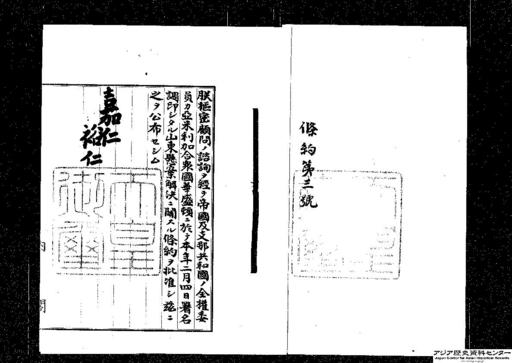 條約第三號
朕樞密顧問ノ諮詢ヲ經テ帝國及支那共和國ノ全權委
員カ亞米利加合衆國華盛頓ニ於テ本年二月四日署名
調印シタル山東懸案解決ニ關スル條約ヲ批准シ茲ニ
之ヲ公布セシム
嘉仁
裕仁
天皇御璽
内閣
アジア歴史資料センター
Japan Center for Asian Historical Records